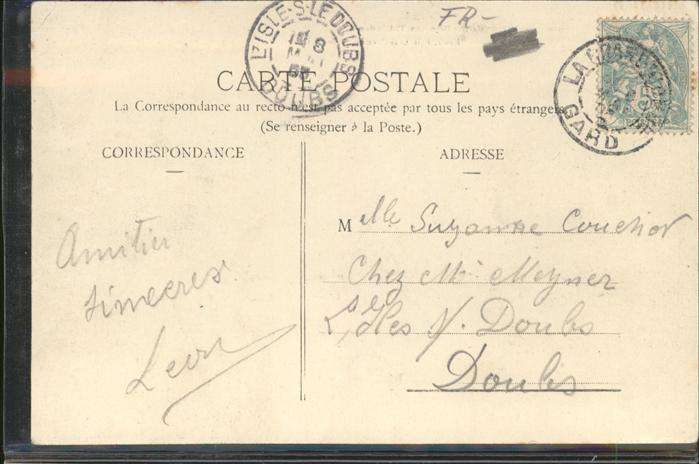 FR-
L'ISLE-S-LE DOUBS
8
DOUBS
LA GRAND COMBE
GARD
CARTE POSTALE
La Correspondance au recto n'est pas acceptée par tous les pays étrangers
(Se renseigner à la Poste.)
CORRESPONDANCE
ADRESSE
Amitiés
sincères
Léon
Mlle Suzanne
Chez Mr Meyner
L'Isles s/. Doubs
Doubs